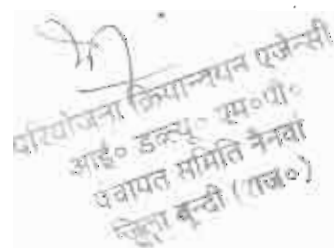 परियोजना क्रियान्वयन एजेन्सी
आई० डब्ल्यू० एम०पी०
पंचायत समिति नैनवा
जिला बून्दी (राज०)